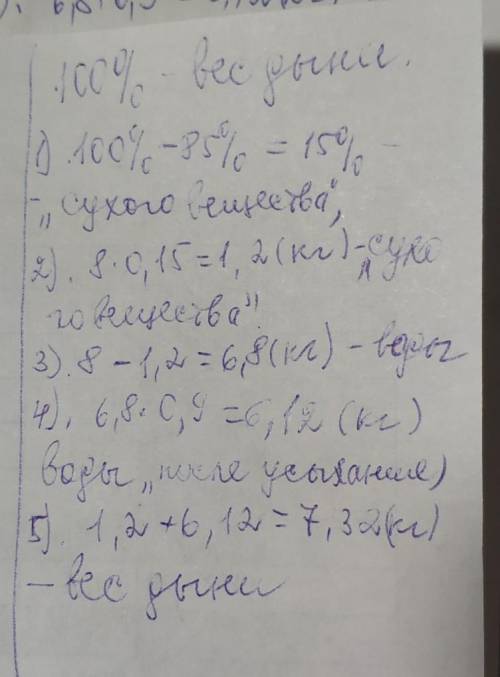 100% - вес дыни.
1). 100% - 85% = 15% -
- „сухого вещества",
2). 8·0,15=1,2(кг) - „сухо
го вещества".
3). 8 - 1,2 = 6,8(кг) - воды
4). 6,8·0,9=6,12 (кг)
воды „после усыхания)
5). 1,2+6,12=7,32(кг)
- вес дыни